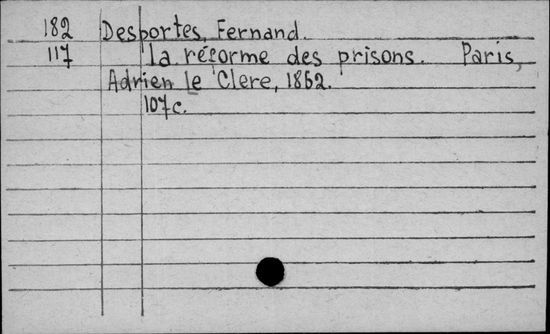 182 Desportes, Fernand.
117 La réforme des prisons. Paris,
Adrien le Clere, 1862.
107c.